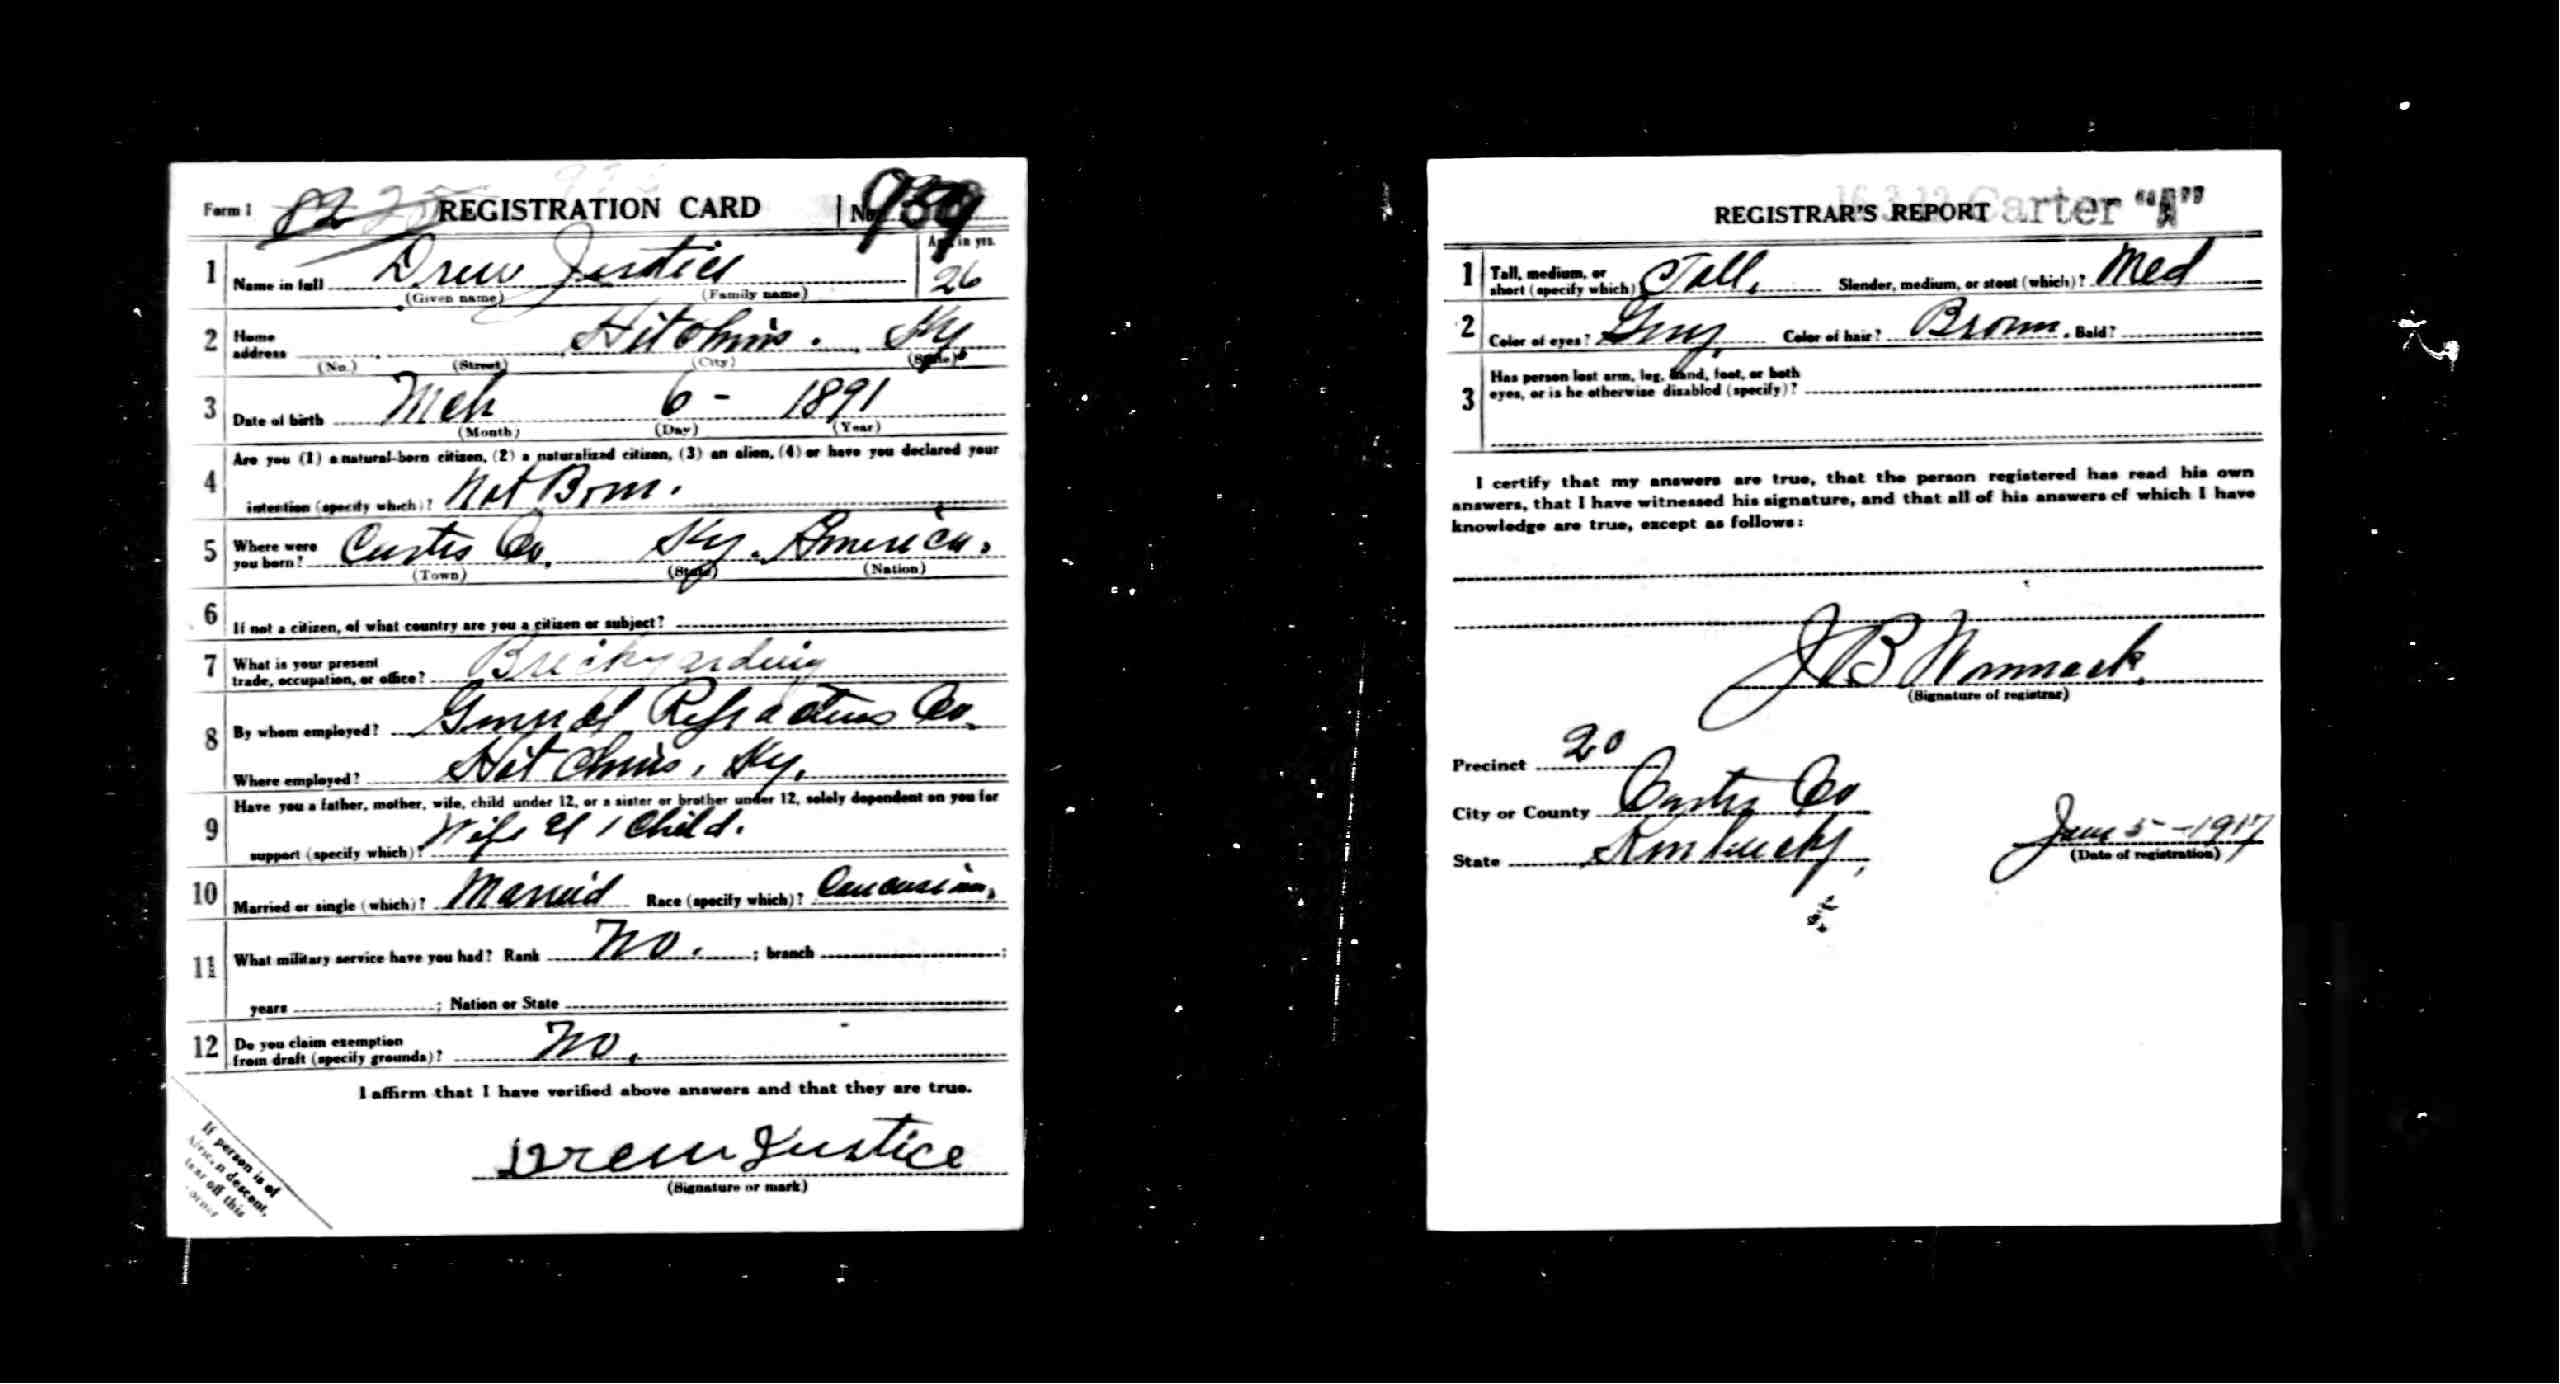 Form 1 REGISTRATION CARD No.
1 Name in full Drew Justice Age in yrs. 26
(Given name) (Family name)
2 Home address Hitchins. Ky
(No.) (Street) (City) (State)
3 Date of birth Mch 6 - 1891
(Month) (Day) (Year)
4 Are you (1) a natural-born citizen, (2) a naturalized citizen, (3) an alien, (4) or have you declared your
intention (specify which)? Nat Born.
5 Where were you born? Carter Co. Ky. America.
(Town) (State) (Nation)
6 If not a citizen, of what country are you a citizen or subject?
7 What is your present
trade, occupation, or office?
8 By whom employed? General Refractories Co.
Where employed? Hitchins, Ky.
9 Have you a father, mother, wife, child under 12, or a sister or brother under 12, solely dependent on you for
support (specify which)? Wife & 1 Child.
10 Married or single (which)? Married Race (specify which)? Caucasian,
11 What military service have you had? Rank No. ; branch ;
years ; Nation or State
12 Do you claim exemption
from draft (specify grounds)? No.
I affirm that I have verified above answers and that they are true.
Drew Justice
(Signature or mark)
If person is of
African descent,
tear off this
corner
REGISTRAR'S REPORT Carter "A"
1 Tall, medium, or
short (specify which) Tall. Slender, medium, or stout (which)? Med
2 Color of eyes? Gray Color of hair? Brown. Bald?
3 Has person lost arm, leg, hand, foot, or both
eyes, or is he otherwise disabled (specify)?
I certify that my answers are true, that the person registered has read his own
answers, that I have witnessed his signature, and that all of his answers of which I have
knowledge are true, except as follows:
J B Wommack.
(Signature of registrar)
Precinct 20
City or County Carter Co
State Kentucky, June 5-1917
(Date of registration)